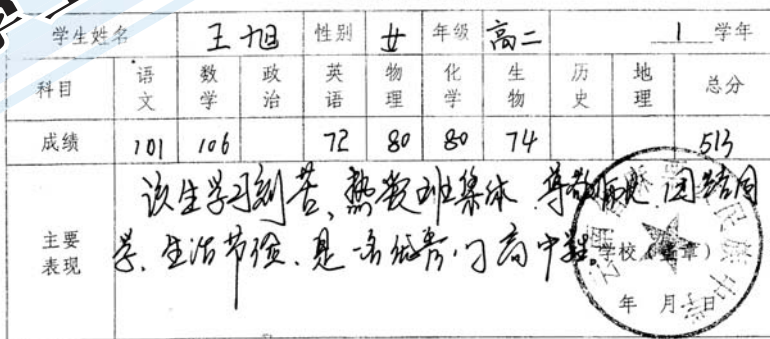 学生姓名 王旭 性别 女 年级 高二 1 学年
科目 语文 数学 政治 英语 物理 化学 生物 历史 地理 总分
成绩 101 106 72 80 80 74 513
主要表现 该生学习刻苦、热爱班集体、尊敬师长、团结同
学、生活节俭、是一名优秀的高中生。
学校(盖章)
年 月 日